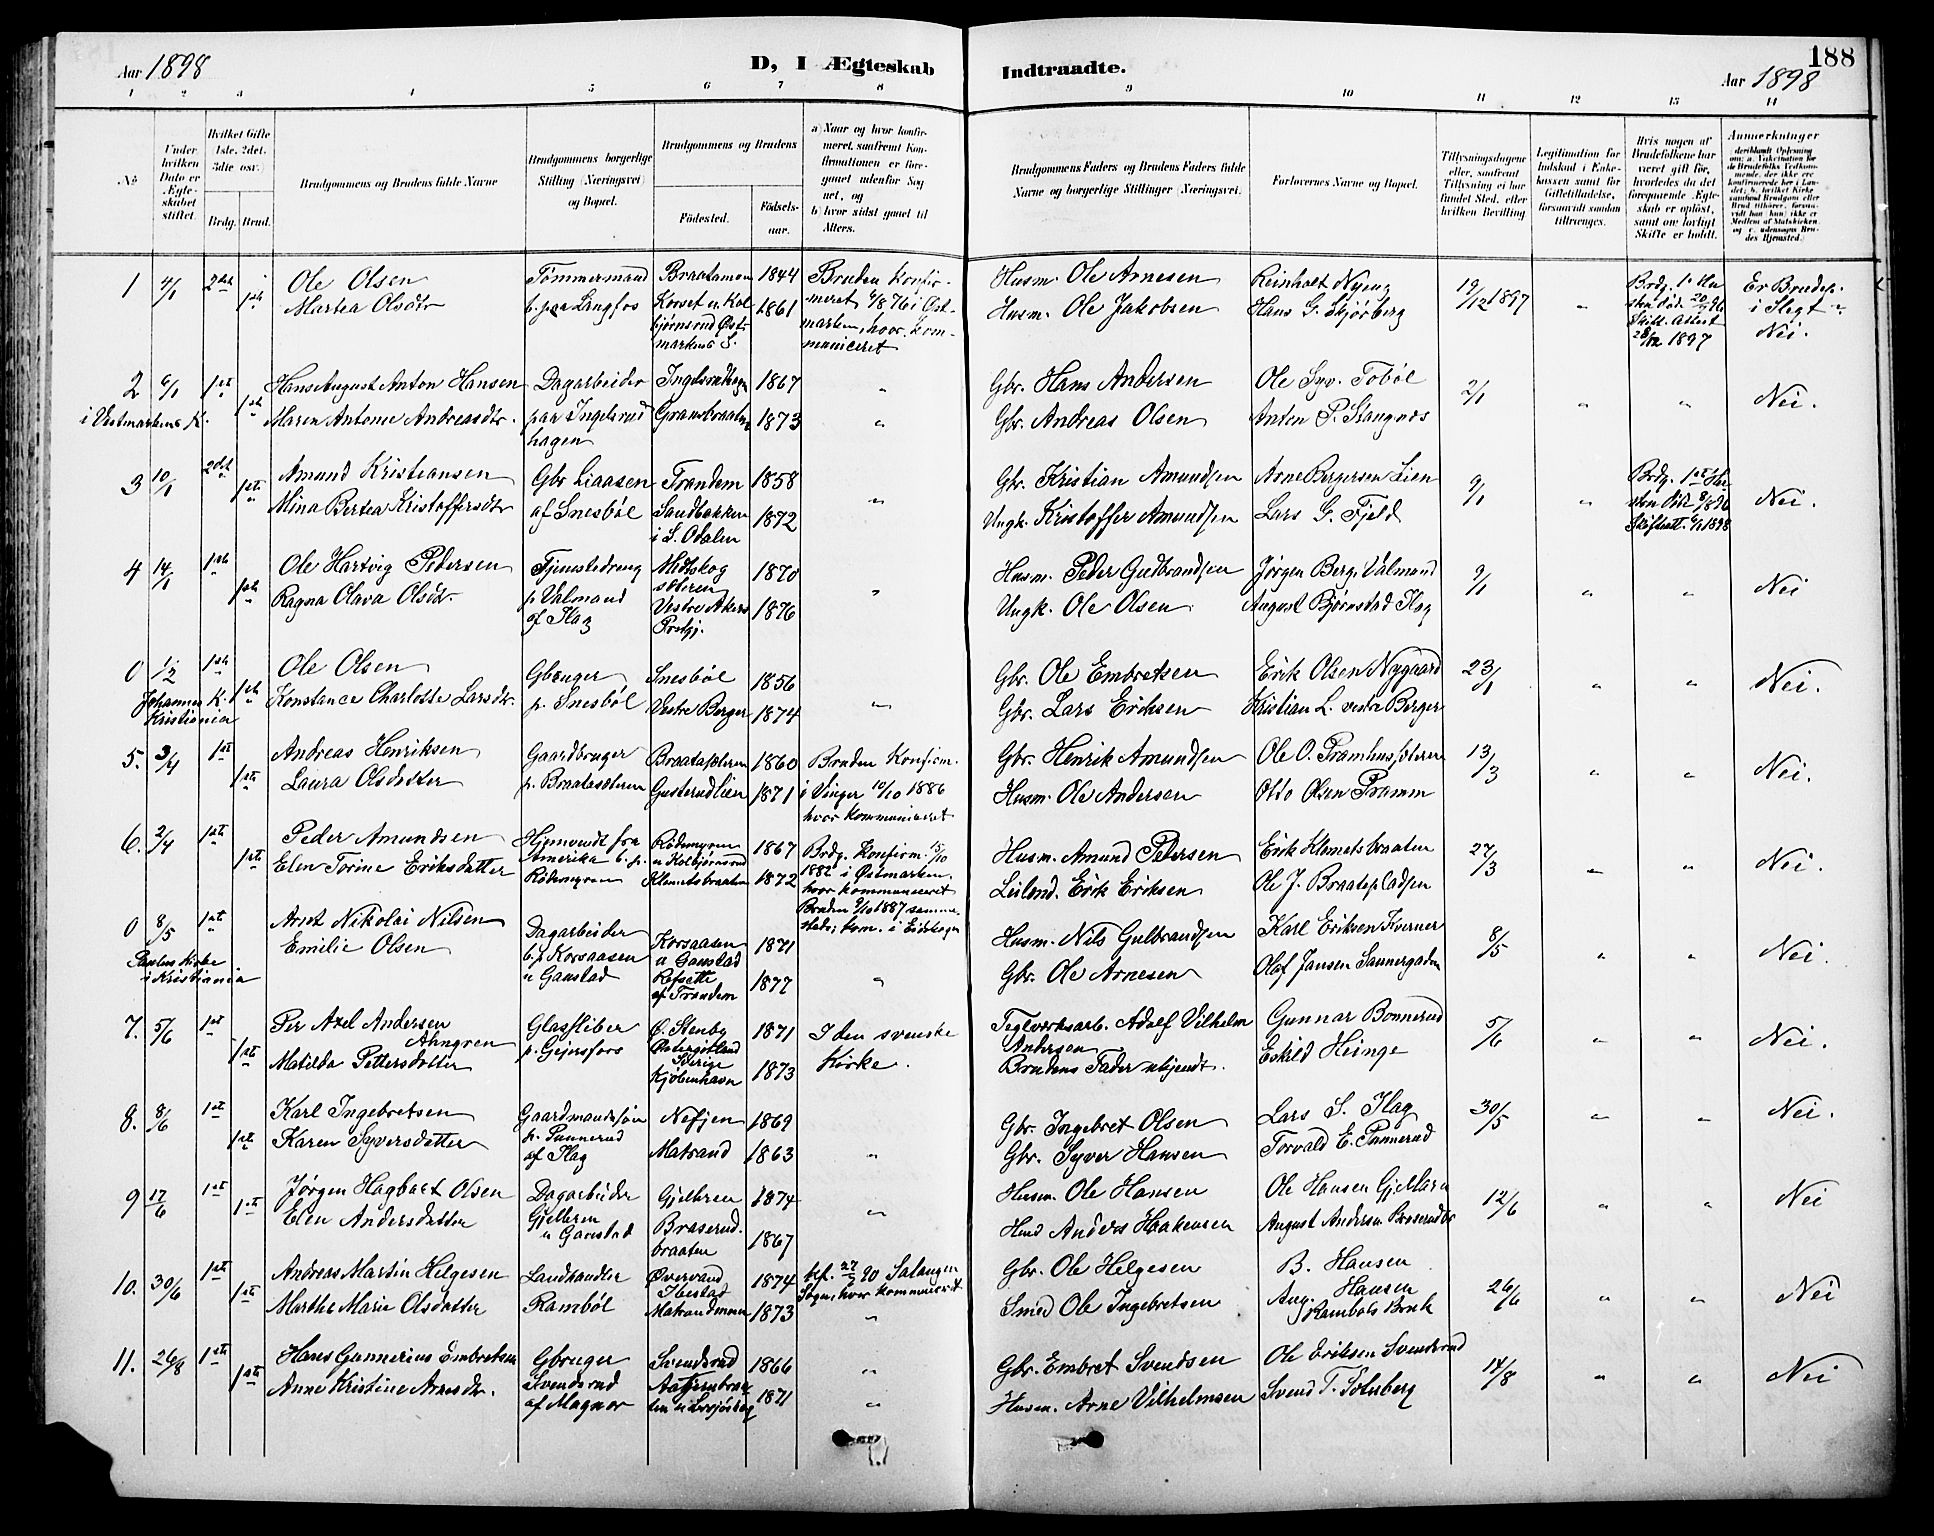 188
Aar 1898
D, I Ægteskab Indtraadte.
Aar 1898
1 2 3 4 5 6 7 8 9 10 11 12 13 14
No
Under hvilken Dato er Ægteskabet stiftet.
Hvilket Gifte 1ste. 2det. 3die osv.
Brdg. Brud.
Brudgommens og Brudens fulde Navne
Brudgommens borgerlige Stilling (Næringsvei) og Bopæl.
Brudgommens og Brudens
Fødested.
Fødselsaar.
a) Naar og hvor konfirmeret, saafremt Konfirmationen er foregaaet udenfor Sognet, og
b) hvor sidst gaaet til Alters.
Brudgommens Faders og Brudens Faders fulde Navne og borgerlige Stillinger (Næringsvei).
Forlovernes Navne og Bopæl.
Tillysningsdagene eller, saafremt Tillysning ei har fundet Sted, efter hvilken Bevilling
Legitimation for Indskud i Enkekassen samt for Giftetilladelse, forsaavidt saadan tiltrænges.
Hvis nogen af Brudefolkene har været gift før, hvorledes da det foregaaende Ægteskab er opløst, samt om lovligt Skifte er holdt.
Anmerkninger
1 4/1 2det 1ste
Ole Olsen
Martea Olsdtr
Tømmermand
b. paa Langfos
Braatamoen 1844
Korset u. Kolbjørnsrud Østmarkens S. 1861
Bruden Konfirmeret 6/8 76 i Østmarken, hvor kommuniceret
Husm. Ole Arnesen
Husm. Ole Jakobsen
Reinholt Nyeng
Hans G. Skjørberg
19/12 1897 "
28/12 1897
Er Brudef. i Slegt? Nei.
2 6/1 1ste 1ste
i Vestmarkens K.
Hans August Anton Hansen
Maren Antonie Andreasdtr.
Dagarbeider
paa Ingelsrudhagen
Ingelsrudhagen 1867
Gransbraaten 1873
" "
Gbr. Hans Andersen
Gbr. Andreas Olsen
Ole Syv. Tobøl
Anton P. Stangnæs
2/1 " " Nei.
3 10/1 2det 1ste
Amund Kristiansen
Mina Bertea Kristoffersdtr
Gbr Liaasen
af Snesbøl
Trandem 1858
Sandbakken i S. Odalen 1872
"
Gbr. Kristian Amundsen
Ungk. Kristoffer Amundsen
Arne Bergersen Lien
Lars G. Fjeld
9/1 "
Nei.
4 14/1 1ste 1ste
Ole Hartvig Pedersen
Ragna Olava Olsdtr.
Tjenestedreng
p. Valmand
af Flag
Midtskogsæteren 1870
Vestre Akers Prstgj. 1876
"
Husm. Peder Gudbrandsen
Ungk. Ole Olsen
Jørgen Berg, Valmand
August Bjørnstad Flag
9/1 " " Nei
0 1/2 1ste 1ste
Johannes K. Kristiania
Ole Olsen
Konstance Charlotte Larsdtr.
Gbruger
p. Snesbøl
Snesbøl 1856
Vestre Berger 1874
"
Gbr. Ole Embretsen
Gbr. Lars Eriksen
Erik Olsen Nygaard
Kristian L. vestre Berger
23/1 " " Nei.
5. 3/4 1ste 1ste
Andreas Henriksen
Laura Olsdatter
Gaardbruger
p. Braatasæteren
Braatasæteren 1860
Gusterudlien 1871
Bruden Konfirm. i Vinger 10/10 1886 hvor kommuniceret
Gbr. Henrik Amundsen
Husm. Ole Andersen
Ole O. Pramhussæteren
Otto Olsen Pramm
13/3 " " Nei.
6. 2/4 1ste 1ste
Peder Amundsen
Elen Torine Eriksdatter
Hjemvendt fra
Amerika b. p.
Rødemyren
Rødemyren u Kolbjørnsrud 1867
Klemetsbraaten 1872
Brdg. Konfirm. 15/10 1882 i Østmarken, hvor kommuniceret
Bruden 9/10 1887 sammesteds; kom. i Eidskogen
Husm. Amund Petersen
Leilend. Erik Eriksen
Erik Klemetsbraaten
Ole J. Braatepladsen
27/3 " " Nei.
0 8/5 1ste
Paulus Kirke
i Kristiania
Arnt Nikolai Nilsen
Emilie Olsen
Dagarbeider
b. p. Korsaasen
u Gaustad
Korsaasen u Gaustad 1871
Refsette af Trandem 1877
"
Husm. Nils Gulbrandsen
Gbr. Ole Arnesen
Karl Eriksen Kverner
Olaf Jansen Sannergaden
8/5 " " Nei.
7. 5/6 1ste 1ste
Per Axel Andersen
Ahngren
Matilda Pettersdatter
Glassliber
p. Gejersfors
Ø. Stenby Østergötland Sverige 1871
Kjøbenhavn 1873
I den svenske
Kirke.
Teglverksarb. Adolf Vilhelm
Andersen
Brudens Fader ukjendt.
Gunnar Bonnerud
Eskild Heinge
5/6 " " Nei.
8. 8/6 1ste 1ste
Karl Ingebretsen
Karen Syversdatter
Gaardmandssøn
p. Pannerud
af Flag
Nefjen 1869
Matrand 1863
"
Gbr. Ingebret Olsen
Gbr. Syver Hansen
Lars S. Flag
Torvald E. Pannerud
30/5 " " Nei.
9 17/6 1ste 1ste
Jørgen Hagbart Olsen
Elen Andersdatter
Dagarbeider
Gjelbren
u Gaustad
Gjelbren 1874
Braserudbraaten 1867
"
Husm. Ole Hansen
Husd Anders Haakensen
Ole Hansen
August Andersen
12/6 " " Nei
10. 30/6 1ste 1ste
Andreas Martin Helgesen
Marthe Marie Olsdatter
Landhandler
Rambøl
Øvervand Ibestad 1874
Matrandmoen 1873
kf. 27/7 90 Salangen
Sogn, hvor kommuniceret.
"
Gbr. Ole Helgesen
Smed Ole Ingebretsen
B. Hansen
Aug. Hansen
Rambøls Bruk
26/6 " " Nei
11. 26/8 1ste 1ste
Hans Gunnerius Embretsen
Anne Kristine Arnesdtr.
Gbruger
Svendsrud
af Magnor
Svendsrud 1866
1871
" "
Gbr. Embret Svendsen
Husm. Arne Vilhelmsen
Ole Eriksen Svendsrud
Svend T. Solnberg
14/8 " " Nei